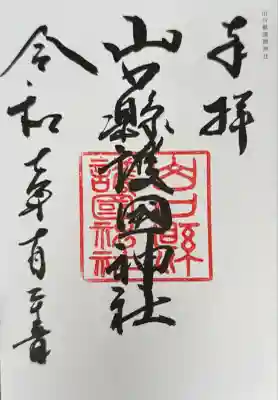 山口縣護國神社
奉拝
山口縣護國神社
山口縣
護國神社
令和七年